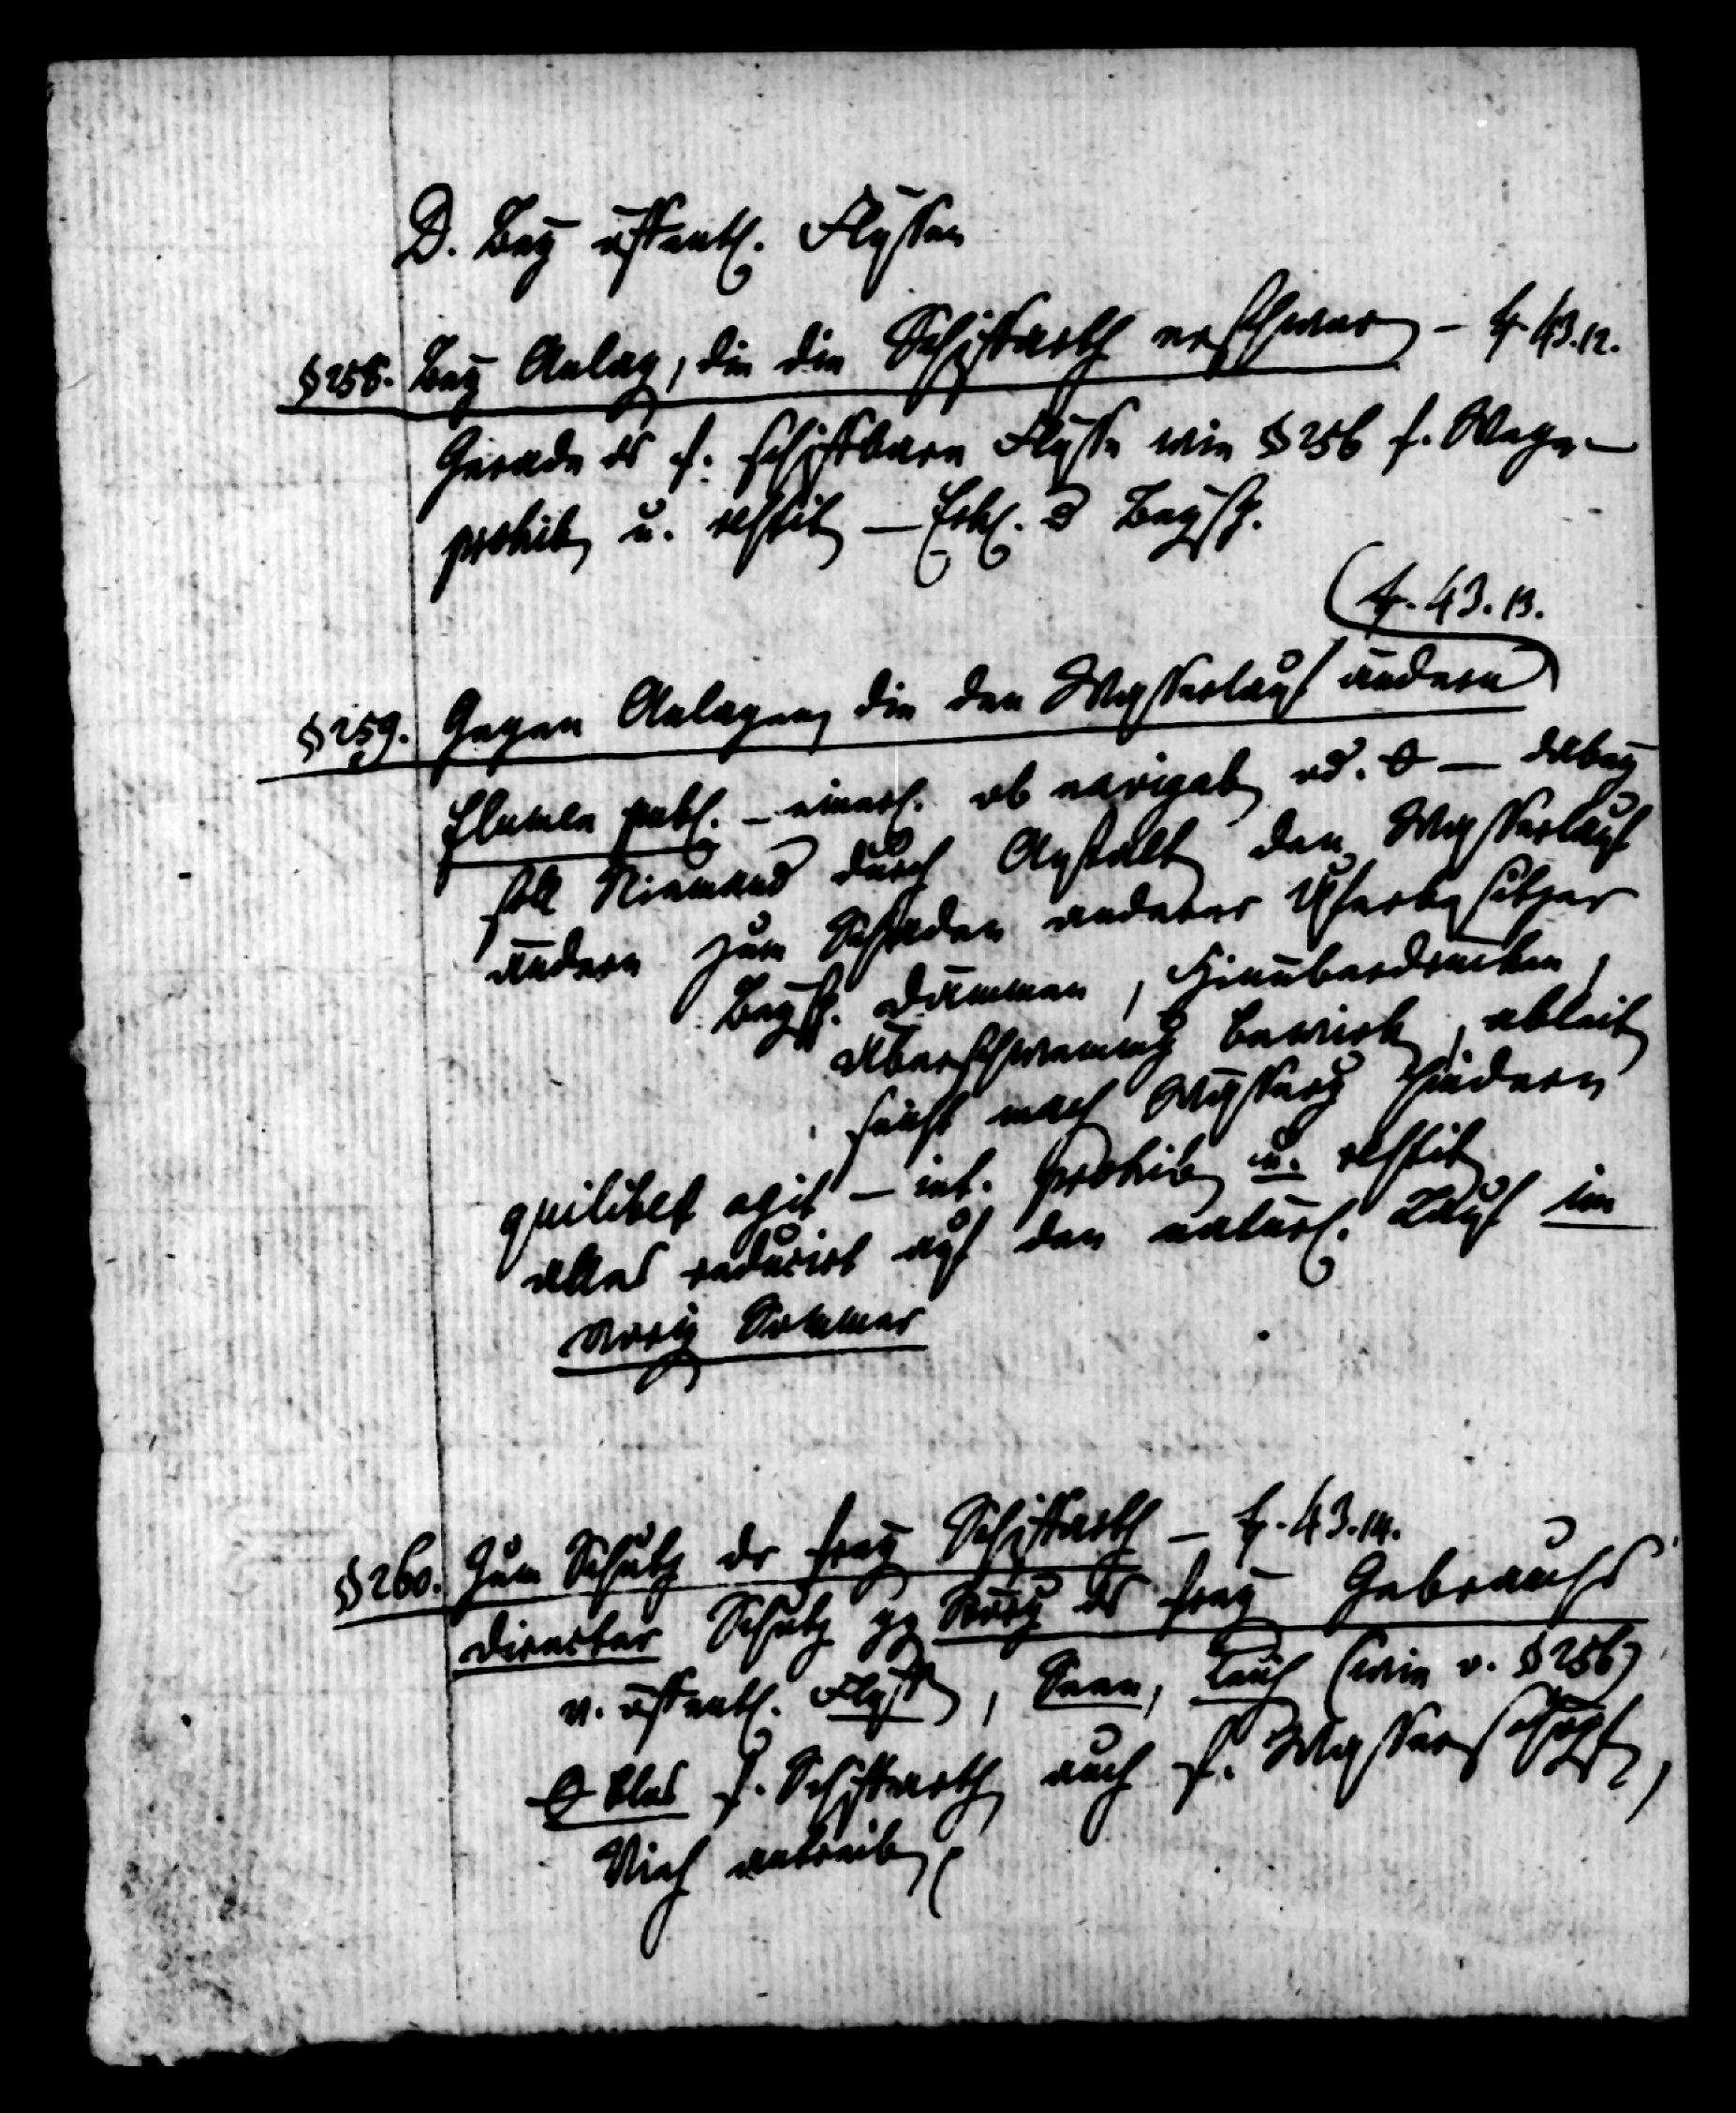 D. Bey öffentl. Flüssen
§ 258. Bey Anlag, die die Schiffarth erschwer – fr. 43.12.
Gerade so f. schiffbare Flüsse wie § 256 f. Wege –
prohib u. restit – Erkl. d Beysp.
fr. 43.13.
§ 259. Gegen Anlagen, die den Wasserlauf ändern
flumen publ. – einerl. ob navigab od. 0 – dabey
soll Niemand durch Anstalt den Wasserlauf
ändern zum Schaden anderer Uferbesitzer
Beysp. dämmen, hinüberdrücken,
Überschwemmg bewirk, ableit
sonst nach Wasserg hindern
quilibet agit – int. prohib u. restit
alles reducirt auf den natürl. Lauf im
vorig Sommer
§ 260. Zum Schutz der frey Schiffarth – fr. 43.14.
directer Schutz gg Störg des frey Gebrauchs
v. öffentl. Flüss, Seen, Teich (wie v. § 256)
0 blos f. Schiffarth, auch f. Wasserschöpf,
Vieh antreib